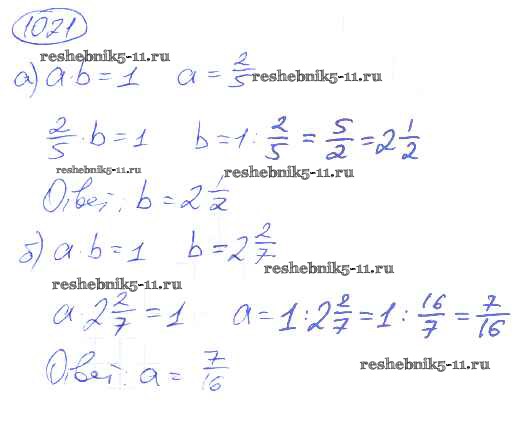 1071
reshebnik5-11.ru
а) a·b=1 a=2/5 reshebnik5-11.ru
2/5·b=1 b=1:2/5=5/2=2 1/2
reshebnik5-11.ru reshebnik5-11.ru
Ответ: b=2 1/2
б) a·b=1 b=2 2/7
reshebnik5-11.ru
reshebnik5-11.ru
a·2 2/7=1 a=1:2 2/7=1:16/7=7/16
reshebnik5-11.ru
Ответ: a=7/16